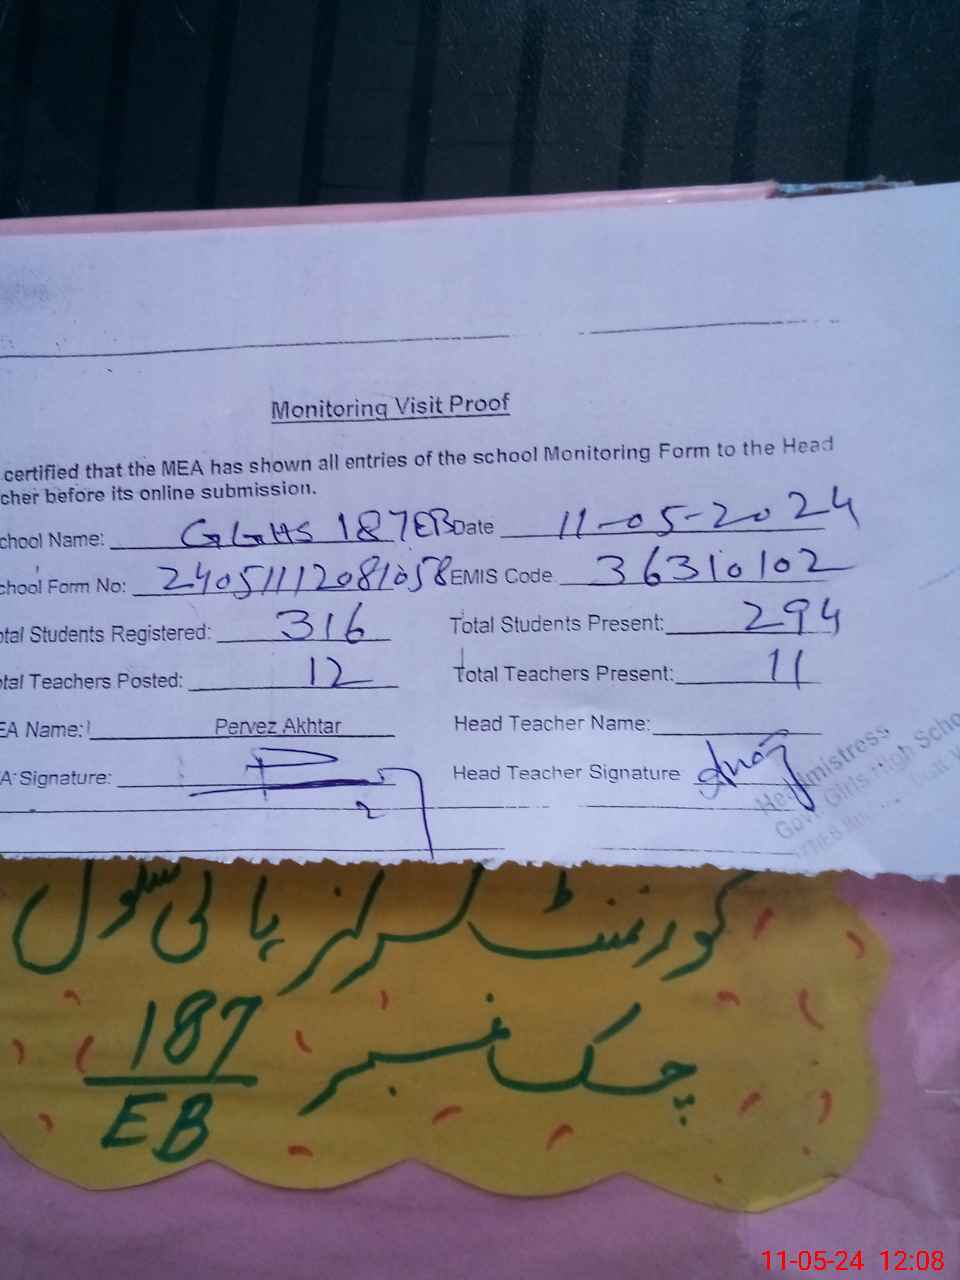 Monitoring Visit Proof
certified that the MEA has shown all entries of the school Monitoring Form to the Head
cher before its online submission.
chool Name: GGHS 187EB Date 11-05-2024
chool Form No: 24051112081058 EMIS Code 36310102
otal Students Registered: 316 Total Students Present: 294
otal Teachers Posted: 12 Total Teachers Present: 11
EA Name: Pervez Akhtar Head Teacher Name:
A Signature: Head Teacher Signature
Headmistress
Govt Girls High Schoo
گورنمنٹ گرلز ہائی سکول
چک نمبر 187
EB
11-05-24 12:08